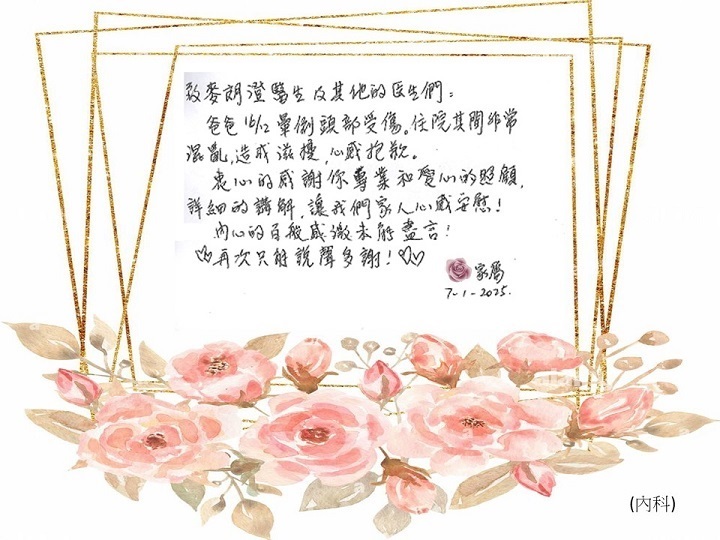 致麥朗澄醫生及其他的医生們：
爸爸16/12暈倒頭部受傷。住院其間非常
混亂，造成滋擾，心感抱歉。
衷心的感謝你專業和愛心的照顧，
詳細的講解，讓我們家人心感安慰！
內心的百般感激未能盡言！
♡再次只能說聲多謝！♡♡
家屬
7-1-2025.
(內科)